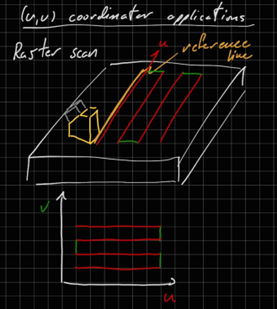 (u,v) coordinator applications
Raster scan
u
reference
line
v
u